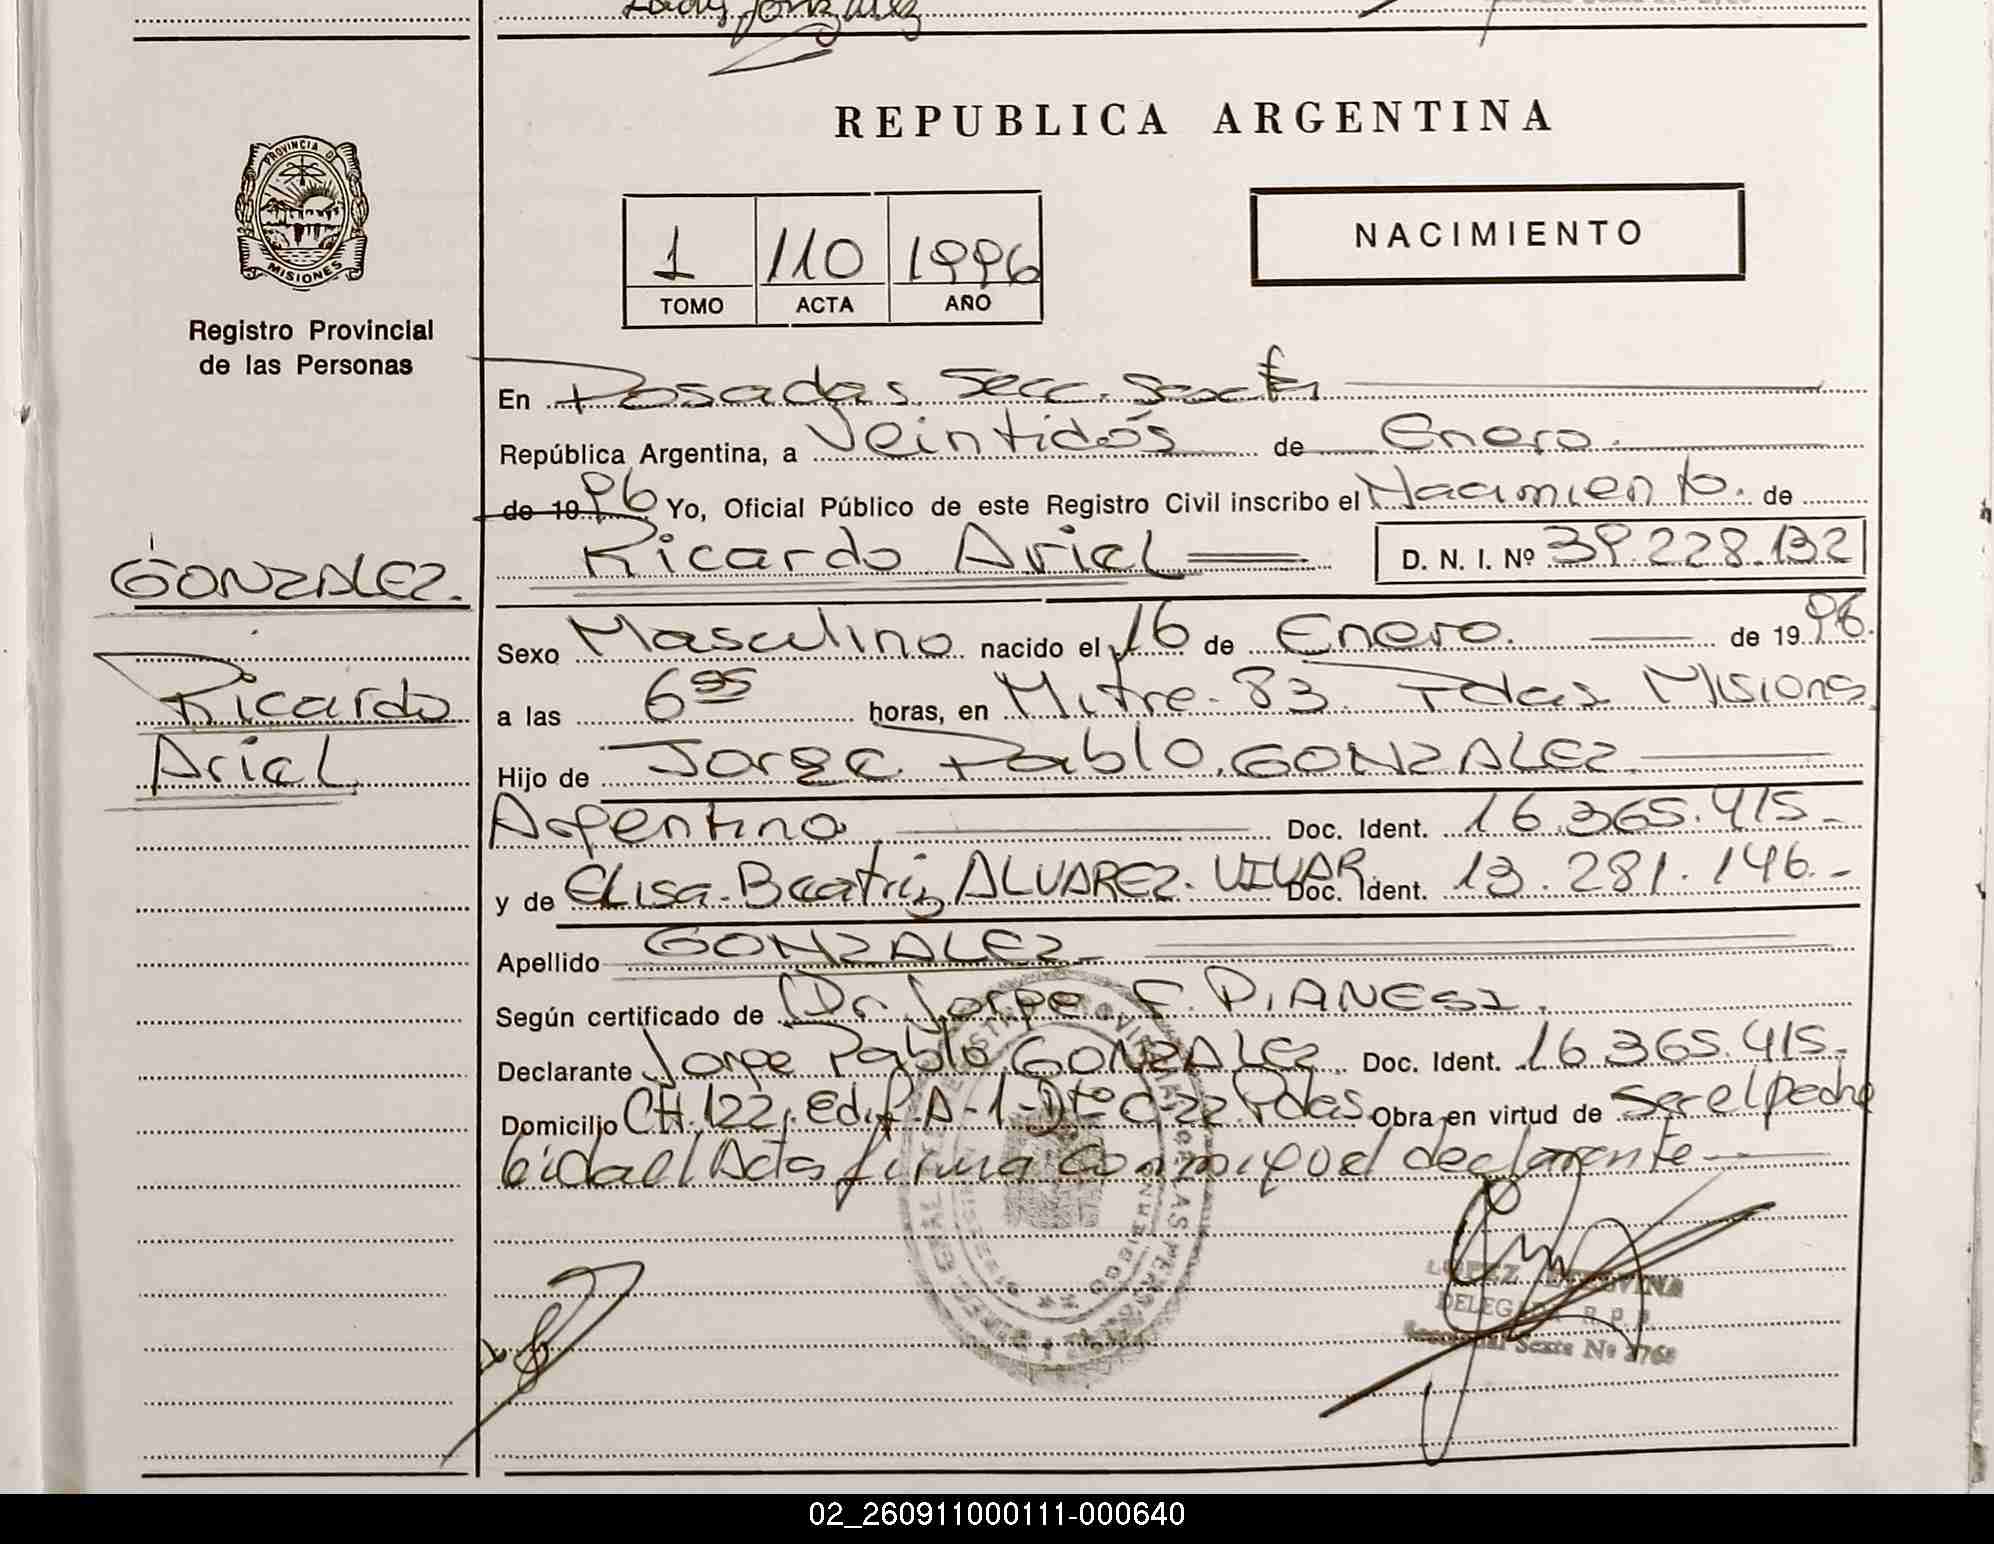 REPUBLICA ARGENTINA
PROVINCIA DE
MISIONES
Registro Provincial
de las Personas
1 110 1996
TOMO ACTA AÑO
NACIMIENTO
En Posadas Secc. Sexta
República Argentina, a Veintidós de Enero.
de 1996 Yo, Oficial Público de este Registro Civil inscribo el Nacimiento. de
Ricardo Ariel D. N. I. Nº 39.228.132
GONZALEZ.
Ricardo
Ariel
Sexo Masculino nacido el 16 de Enero. de 1996.
a las 6 35 horas, en Mitre. 83. Pdas Misiones
Hijo de Jorge Pablo. GONZALEZ
Argentino Doc. Ident. 16.365.415.-
y de Elisa. Beatriz ALVAREZ. VIVAR. Doc. Ident. 13.281.146.-
Apellido GONZALEZ-
Según certificado de Dr. Jorge F. PIANESI.
Declarante Jorge Pablo GONZALEZ Doc. Ident. 16.365.415.-
Domicilio CH. 122, Edif. A-1-Dto C-22 Pdas Obra en virtud de Ser el padre
leida el Acta firma conmigo el declarante
LOPEZ
DELEGADA R. P. P.
Seccional Sexta Nº 2768
02_260911000111-000640